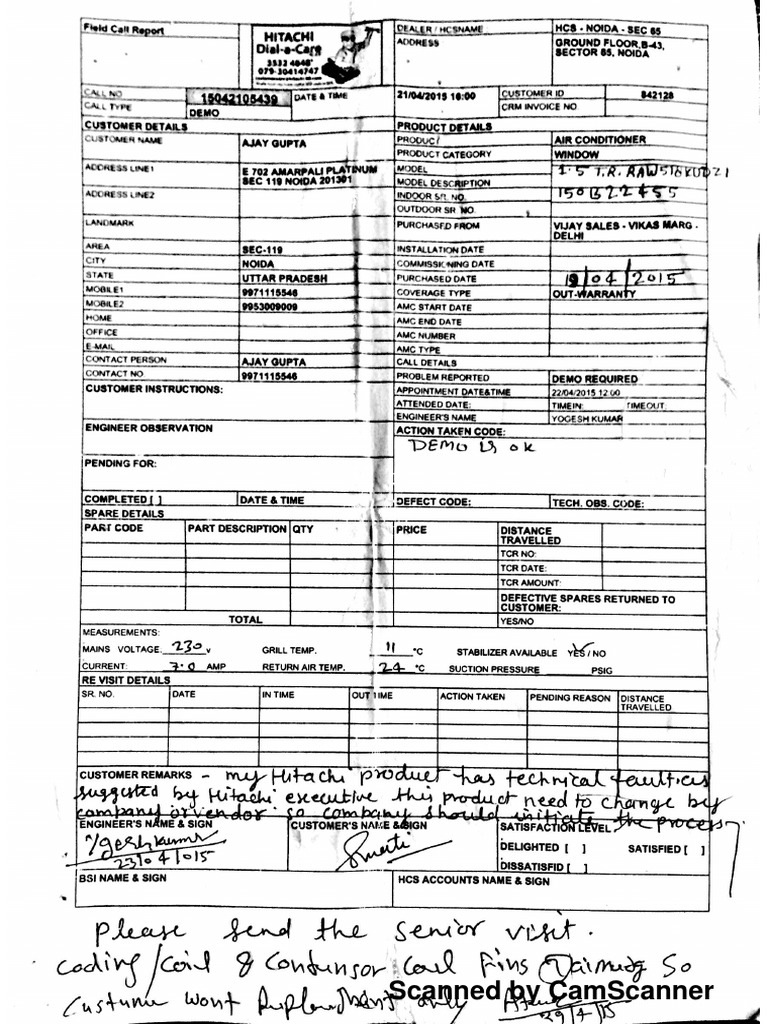 Field Call Report
HITACHI
Dial-a-Care
3532 4848
079-30414747
DEALER / HCSNAME HCS - NOIDA - SEC 65
ADDRESS GROUND FLOOR,B-43,
SECTOR 65, NOIDA
CALL NO 15042105439 DATE & TIME 21/04/2015 16:00 CUSTOMER ID 842128
CALL TYPE DEMO CRM INVOICE NO
CUSTOMER DETAILS PRODUCT DETAILS
CUSTOMER NAME AJAY GUPTA PRODUCT AIR CONDITIONER
PRODUCT CATEGORY WINDOW
ADDRESS LINE1 E 702 AMARPALI PLATINUM MODEL 1.5 T.R.
SEC 119 NOIDA 201301 MODEL DESCRIPTION
ADDRESS LINE2 INDOOR SR. NO. 150B22455
OUTDOOR SR NO.
LANDMARK PURCHASED FROM VIJAY SALES - VIKAS MARG -
DELHI
AREA SEC-119 INSTALLATION DATE
CITY NOIDA COMMISSIONING DATE
STATE UTTAR PRADESH PURCHASED DATE 19/04/2015
MOBILE1 9971115546 COVERAGE TYPE OUT-WARRANTY
MOBILE2 9953009009 AMC START DATE
HOME AMC END DATE
OFFICE AMC NUMBER
E-MAIL AMC TYPE
CONTACT PERSON AJAY GUPTA CALL DETAILS
CONTACT NO 9971115546 PROBLEM REPORTED DEMO REQUIRED
CUSTOMER INSTRUCTIONS: APPOINTMENT DATE&TIME 22/04/2015 12:00
ATTENDED DATE: TIME IN: TIMEOUT:
ENGINEER'S NAME YOGESH KUMAR
ENGINEER OBSERVATION ACTION TAKEN CODE:
DEMO is ok
PENDING FOR:
COMPLETED [ ] DATE & TIME DEFECT CODE: TECH. OBS. CODE:
SPARE DETAILS
PART CODE PART DESCRIPTION QTY PRICE DISTANCE
TRAVELLED
TCR NO:
TCR DATE:
TCR AMOUNT:
DEFECTIVE SPARES RETURNED TO
CUSTOMER:
TOTAL YES/NO
MEASUREMENTS:
MAINS VOLTAGE. 230 v GRILL TEMP. 11 °C STABILIZER AVAILABLE YES / NO
CURRENT: 7.0 AMP RETURN AIR TEMP. 24 °C SUCTION PRESSURE PSIG
RE VISIT DETAILS
SR. NO. DATE IN TIME OUT TIME ACTION TAKEN PENDING REASON DISTANCE
TRAVELLED
CUSTOMER REMARKS - my Hitachi product has technical faulties
suggested by Hitachi executive this product need to change by
company or vendor. so company should initiate the process.
ENGINEER'S NAME & SIGN CUSTOMER'S NAME & SIGN SATISFACTION LEVEL
Yogesh kumar DELIGHTED [ ] SATISFIED [ ]
23/04/015 DISSATISFID [ ]
BSI NAME & SIGN HCS ACCOUNTS NAME & SIGN
Please send the senior visit.
Coding/Coil & Condunsor Coul Fins so
Custumer wont only
29/4/15
Scanned by CamScanner